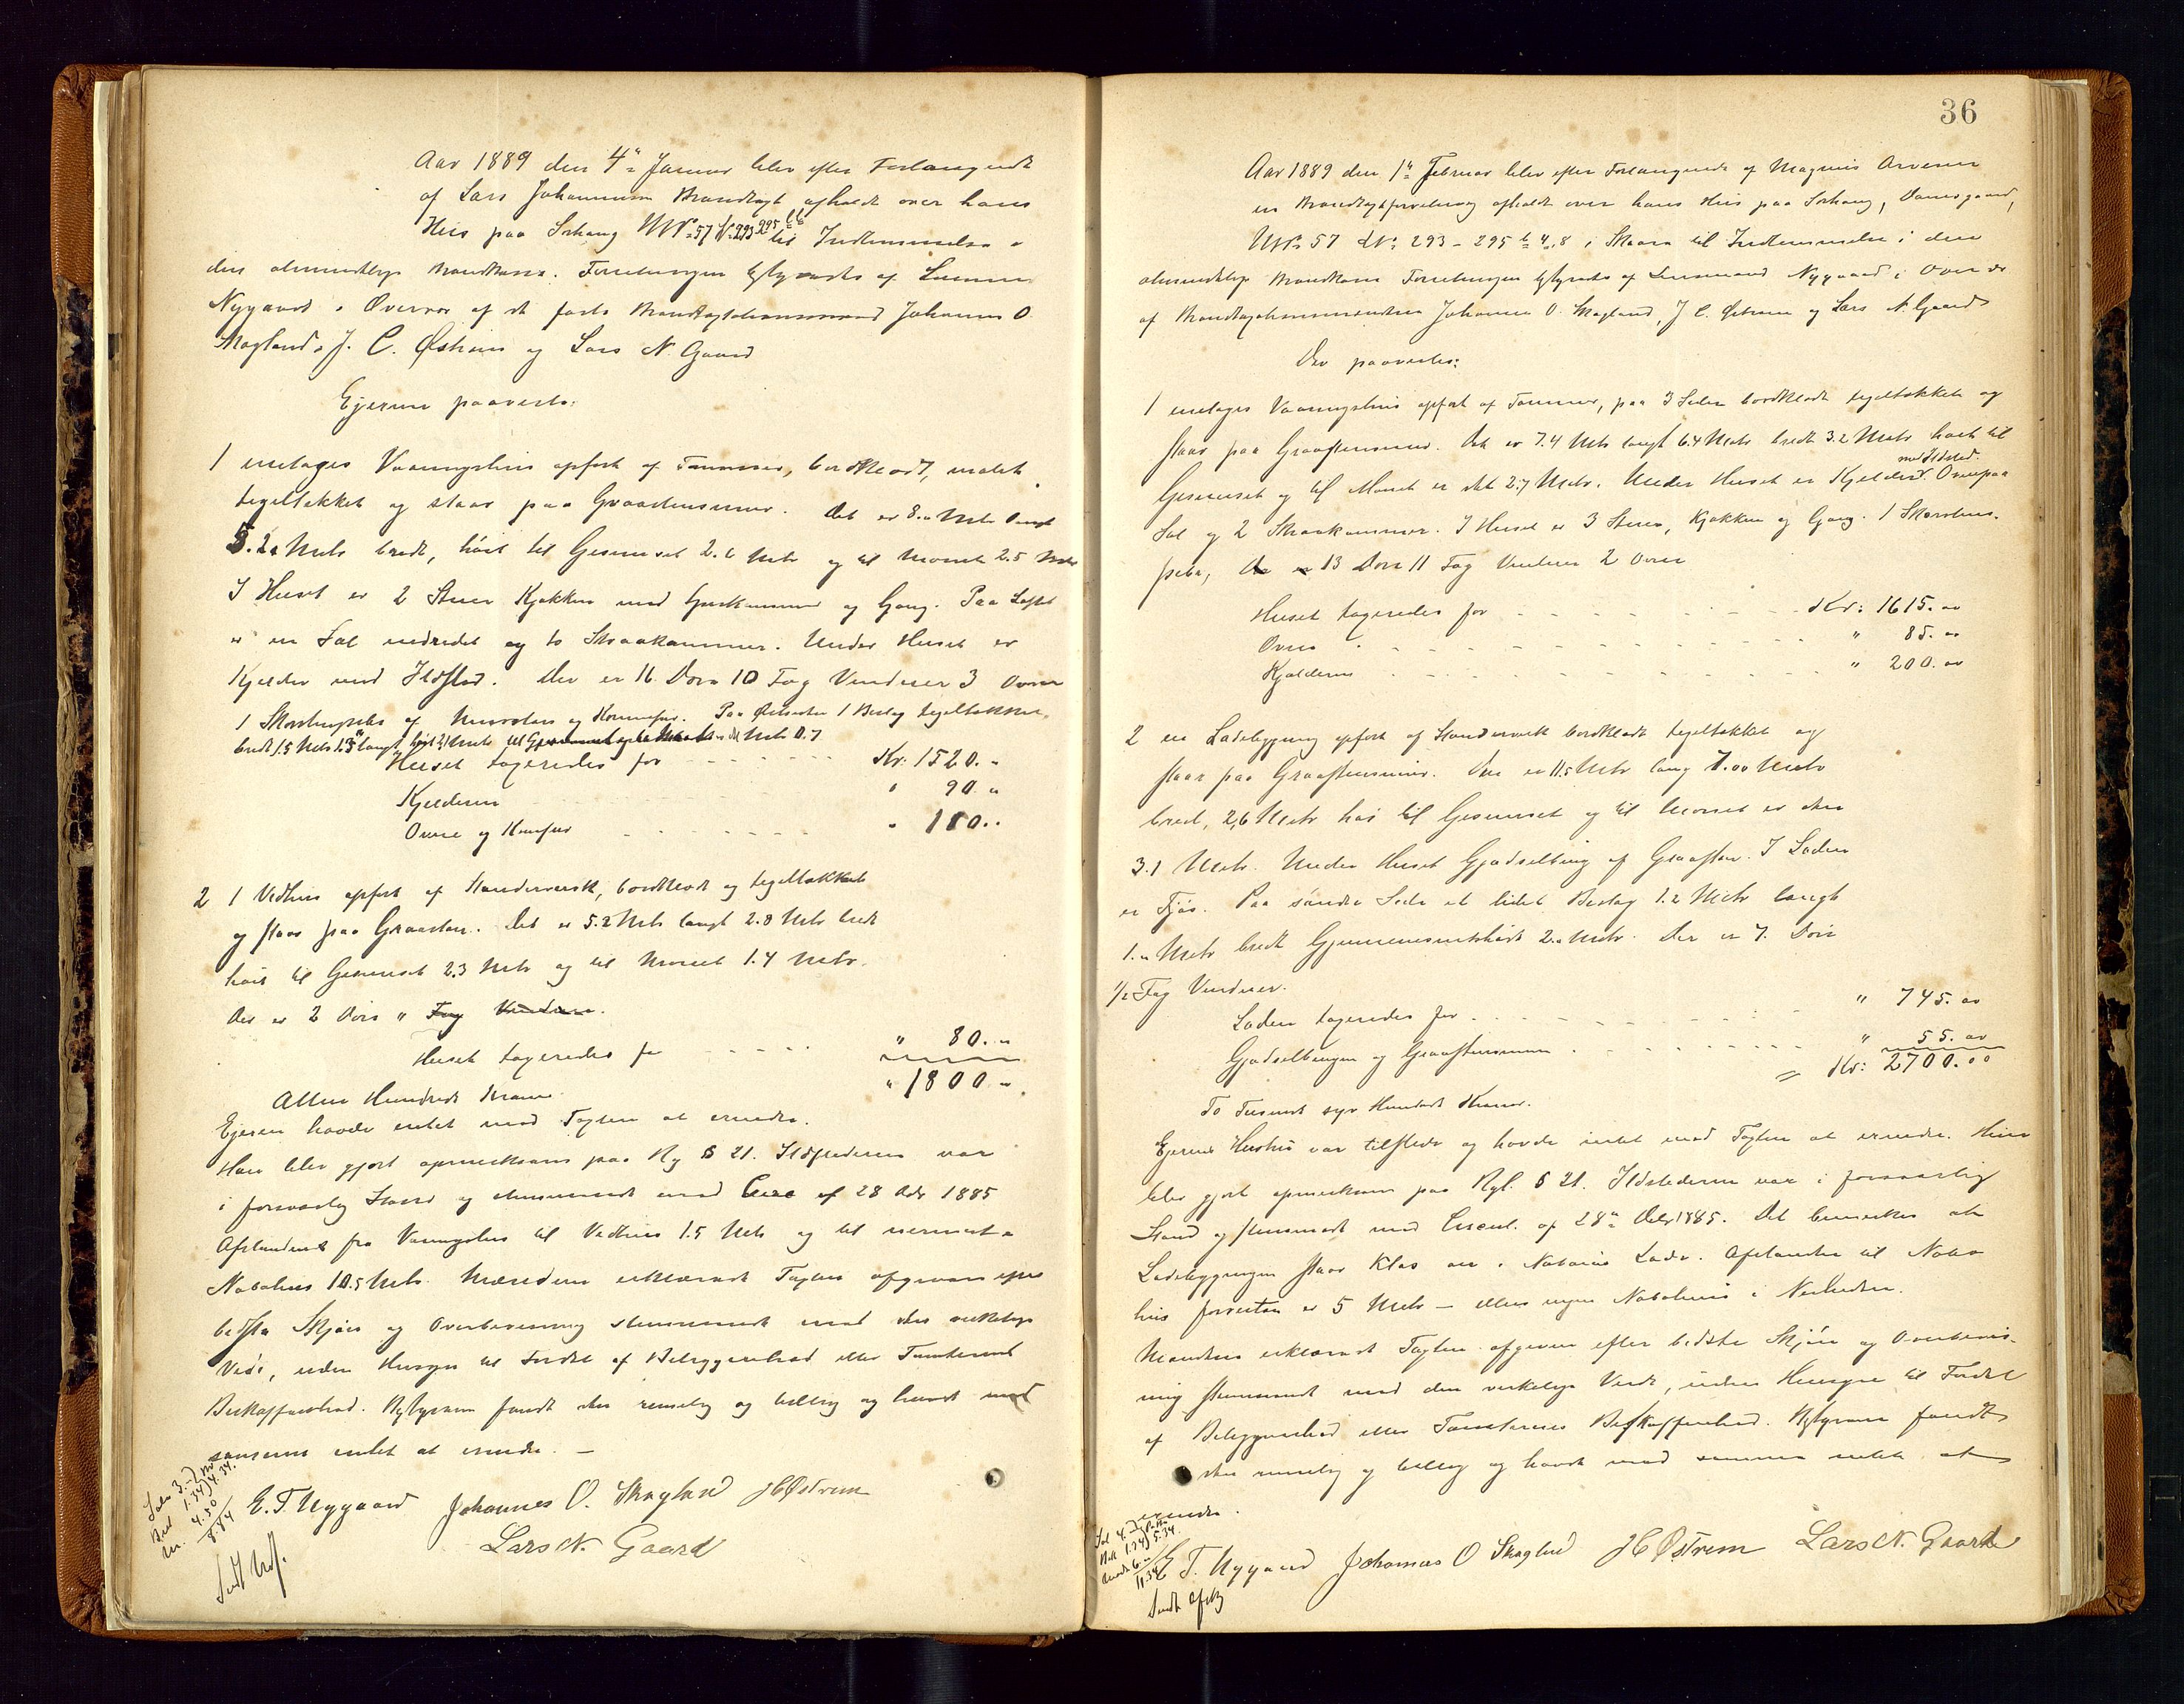 Aar 1889 den 4de Januar blev efter Forlangende
af Lars Johannesen Brandtaxt afholdt over hans
Hus paa Sørhaug MNo 57 LNo 293 295 til Indlemmelse i
den almindelige Brandkasse. Forretningen bestyredes af Lensm.
Nygaard i Overvær af de faste Brandtaxtationsmænd Johannes O.
Skogland, J. C. Østrem og Lars N. Gaard
Ejeren paaviste:
1 enetages Vaaningshus opført af Tømmer, bordklædt, malet
tegltækket og staar paa Graastensmur. Det er 8.0 Metr langt
5.2 Metr bredt, høit til Gesimset 2.6 Metr og til Mønet 2.5 Metr
I Huset er 2 Stuer Kjøkken med Spiskammer og Gang. Paa Loftet
er en Sal indredet og to Skraakammer. Under Huset er
Kjelder med Ildsted. Der er 16 Døre 10 Fag Vinduer 3 Ovne
1 Skorstenspibe af Mursten og Komfur. Paa Østsiden 1 Bislag tegltækket,
bredt 1.5 Metr 1.3 langt høit 2.1 Metr til Gesimset og til Mønet er det Metr 0.7
Huset taxeredes for - - - - - - Kr: 1520. "
Kjelderen " 90 "
Ovne og Komfur - - - - - - " 110. "
2 1 Vedhus opført af Standerværk, bordklædt og tegltækket
og staar paa Graasten. Det er 5.2 Metr langt 2.8 Metr bredt
høit til Gesimset 2.3 Metr og til Mønet 1.4 Metr.
Der er 2 Døre " Fag Vinduer.
Huset taxeredes for - - - - " 80. "
" 1800 "
Atten Hundrede Kroner.
Ejeren havde intet mod Taxten at erindre.
Han blev gjort opmerksom paa Rg § 21. Ildstederne var
i forsvarlig Stand og stemmende med Circ af 28 Oktr 1885
Afstanden fra Vaaningshus til Vedhus 1.5 Metr og til nærmeste
Nabohus 10.5 Metr. Mændene erklærede Taxten afgiven efter
bedste Skjøn og Overbevisning stemmende med den virkelige
Værdi, uden Hensyn til Fordel af Beliggenhed eller Tomtens
Beskaffenhed. Bestyreren fandt den rimelig og billig og havde mod
samme intet at erindre. —
E. T. Nygaard Johannes O. Skogland JCØstrem
Lars N. Gaard
8.84
36
Aar 1889 den 1ste Februar blev efter Forlangende af Magnus Arvesen
en Brandtaxtforretning afholdt over hans Hus paa Sørhaug,
MNo 57 LNo 293 - 295 i Skaare til Indlemmelse i den
almindelige Brandkasse Forretningen bestyredes af Lensmand Nygaard i Overvær
af Brandtaxtationsmændene Johannes O. Skogland, J. C. Østrem og Lars N. Gaard
Der paavistes:
1 enetages Vaaningshus opført af Tømmer, paa 3 Sider bordklædt tegltækket og
staar paa Graastensmur. Det er 7.4 Metr langt 6.4 Metr bredt 3.2 Metr høit til
med Ildsted.
Gesimset og til Mønet er det 2.7 Metr. Under Huset er Kjelder. Ovenpaa
Sal og 2 Skraakammer. I Huset er 3 Stuer, Kjøkken og Gang. 1 Skorstens-
pibe, 13 Døre 11 Fag Vinduer 2 Ovne
Huset taxeredes for - - - - - - Kr: 1615. 00
Ovne - - - - - - " 85. 00
Kjelderen - - - - - - " 200. 00
2 en Ladebygning opført af Standerværk bordklædt tegltækket og
staar paa Graastensmur. Den er 11.5 Metr lang 7.00 Metr
bred, 2,6 Metr høi til Gesimset og til Mønet er den
3.1 Metr. Under Huset Gjødselbing af Graasten. I Laden
er Fjøs. Paa søndre Side et lidet Bislag 1.2 Metr langt
1." Metr bredt Gjennemsnitshøide 2." Metr. Der er 7. Døre
1/2 Fag Vinduer.
Laden taxeredes for - - - - - - " 745. 00
Gjødselbingen og Graastensmuren - - - - - - " 55. 00
= Kr: 2700. 00
To Tusinde syv Hundrede Kroner.
Ejerens Hustru var tilstede og havde intet mod Taxten at erindre. Hun
blev gjort opmerksom paa Rgl. § 21. Ildstederne var i forsvarlig
Stand og stemmende med Circul. af 28de Oktr 1885. Det bemerkes at
Ladebygningen staar klos ind i Naboens Lade. Afstanden til Nabo
hus forresten er 5 Metr — ellers ingen Nabohuse i Nærheden.
Mændene erklærede Taxten afgiven efter bedste Skjøn og Overbevis-
ning stemmende med den virkelige Værdi, uden Hensyn til Fordel
af Beliggenhed eller Tomtens Beskaffenhed. Bestyreren fandt
den rimelig og billig og havde mod samme intet at
erindre.
E. T. Nygaard Johannes O Skogland JCØstrem Lars N. Gaard
11.34